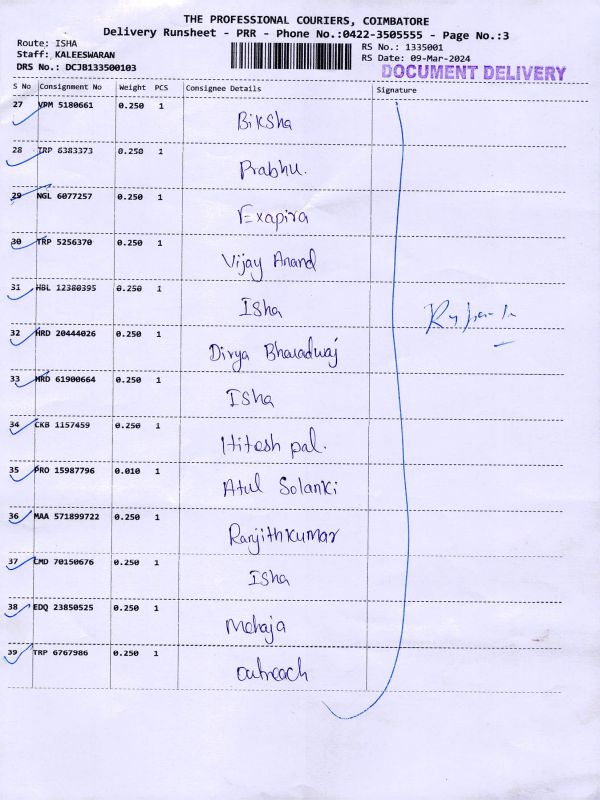 THE PROFESSIONAL COURIERS, COIMBATORE
Delivery Runsheet - PRR - Phone No.:0422-3505555 - Page No.:3
Route: ISHA
Staff: KALEESWARAN
DRS No.: DCJB133500103
RS No.: 1335001
RS Date: 09-Mar-2024
DOCUMENT DELIVERY
S No Consignment No Weight PCS Consignee Details Signature
27 VPM 5180661 0.250 1
Biksha
28 TRP 6383373 0.250 1
Prabhu.
29 NGL 6077257 0.250 1
Exapira
30 TRP 5256370 0.250 1
Vijay Anand
31 HBL 12380395 0.250 1
Isha
32 HRD 20444026 0.250 1
Divya Bharadwaj
33 HRD 61900664 0.250 1
Isha
34 CKB 1157459 0.250 1
Hitesh pal.
35 PRO 15987796 0.010 1
Atul Solanki
36 MAA 571899722 0.250 1
Ranjithkumar
37 CMD 70150676 0.250 1
Isha
38 EDQ 23850525 0.250 1
Mehaja
39 TRP 6767986 0.250 1
outreach